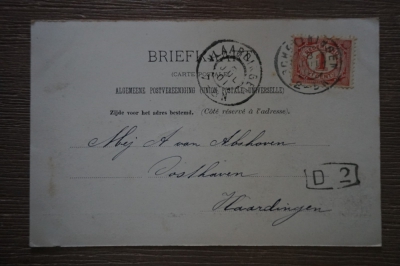 BRIEFKAART
(CARTE POSTALE)
ALGEMEENE POSTVEREENIGING (UNION POSTALE UNIVERSELLE)
Zijde voor het adres bestemd. (Côté réservé à l'adresse).
Mej A van Abshoven
Oosthaven
Vlaardingen
D 2